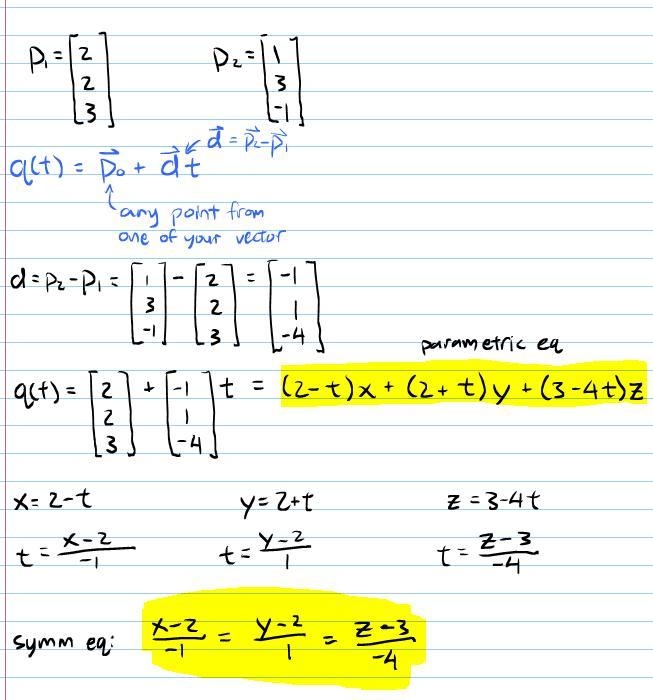 P₁ = [2 2 3] P₂ = [1 3 -1]
d⃗ = p⃗₂-p⃗₁
q(t) = p⃗₀ + d⃗t
any point from
one of your vector
d = P₂-P₁ = [1 3 -1] - [2 2 3] = [-1 1 -4]
parametric eq
q(t) = [2 2 3] + [-1 1 -4] t = (2-t)x + (2+t)y + (3-4t)z
x = 2-t y = 2+t z = 3-4t
t = x-2/-1 t = y-2/1 t = z-3/-4
symm eq: x-2/-1 = y-2/1 = z-3/-4